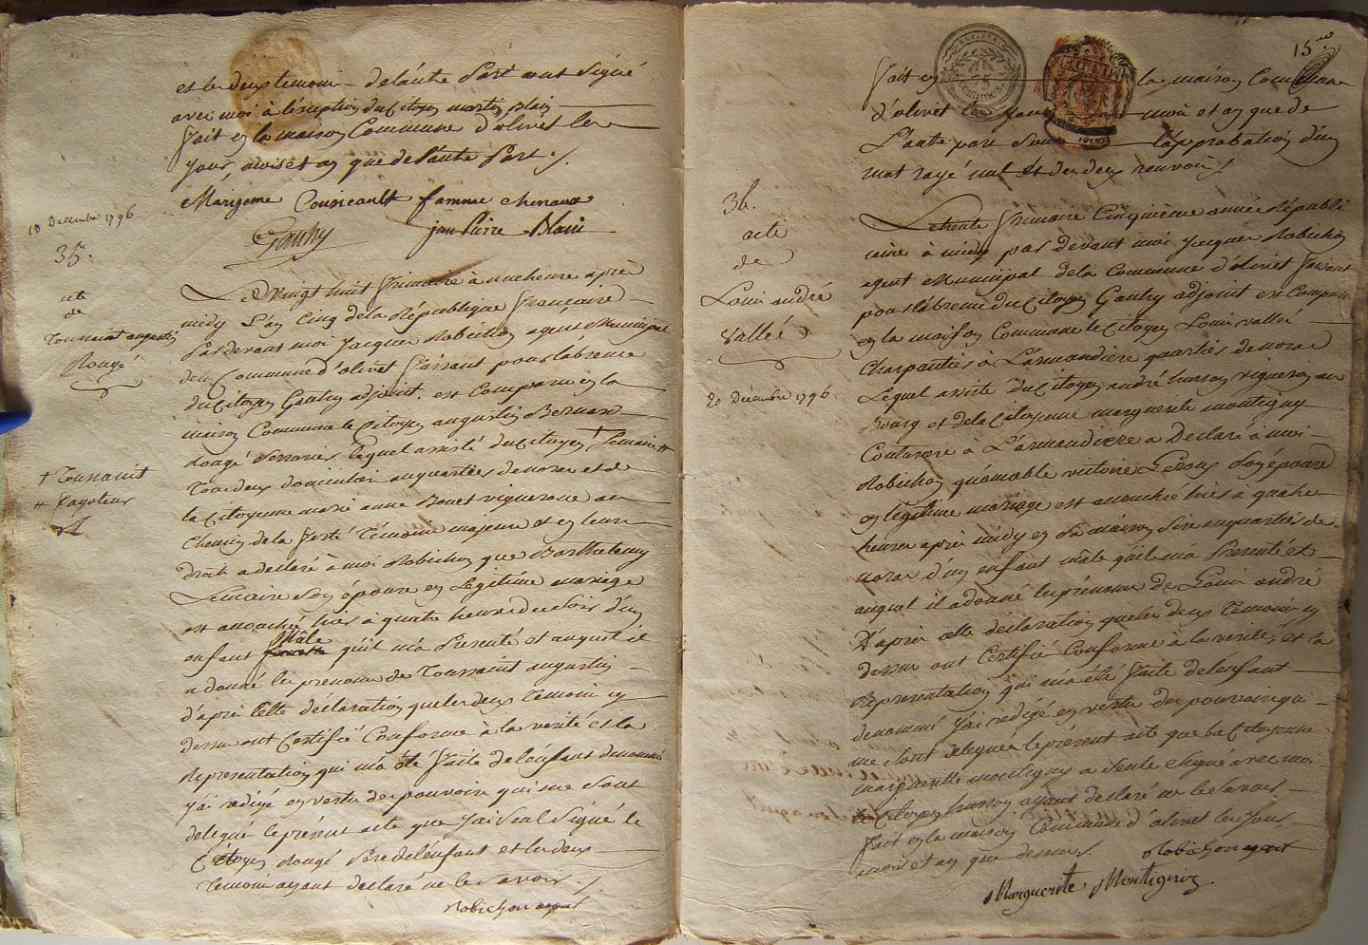 et les deux temoin de l'autre Part ont Signé
avec moi à l'éxception du Citoyen martin blain
fait en la maison Commune d'olivet les
Jour, mois et an que de l'autre Part ./.
Marigeme Couricault famme chenaux
Gautry jean Pierre Blain
18 Decembre 1796
35.e
acte
de
Toussaint augustin
Rougé
Le Vingt huit frimaire à une heure après
midy L'an Cinq de la République française
Pardevant moi Jacques Robichon agent Municipal
de la Commune d'olivet faisant pour l'absence
du Citoyen Gautry adjoint. est Comparu en la
maison Commune le Citoyen augustin Bernard
Rougé lequel assisté du Citoyen + Lemaire #
Tous deux domiciliés au quartier de noras et de
la Citoyenne marie anne Bouet vigneronne au
Chemin de la ferté Témoins majeurs et en leurs
droits a declaré à moi Robichon que Barthelemy
Lemaire Son épouse en Légitime mariage
est accouchée hier à quatre heures du Soir d'un
enfant Mâle qu'il m'a Presenté et auquel il
a donné les prenoms de Toussaint augustin
d'après Cette déclaration que les deux temoins cy
dessus ont Certifié Conforme à la verité et la
Représentation qui m'a été faite de l'enfant denommé
j'ai redigé en vertu des pouvoirs qui me Sont
delegué le présent acte que J'ai Seul Signé le
Citoyen Rougé Père de l'enfant et les deux
temoins ayant declaré ne le savoir ./.
Robichon agent
+ Toussaint
# fagoteur
R
15.me
fait en la maison Commune
d'olivet les Jour mois et an que de
L'autre part l'approbation d'un
mot rayé nul et des deux renvois ./.
36.
acte
de
Louis andré
Vallée
20 Décembre 1796
Le trente frimaire Cinquième année Républi
caine à midy par devant moi Jacques Robichon
agent Municipal de la Commune d'olivet faisant
pour l'absence du Citoyen Gautry adjoint est Comparu
en la maison Commune le Citoyen Louis vallée
Charpentier à L'armandière quartier de noras
Lequel assisté du Citoyen andré husson vigneron au
Bourg et de la Citoyenne marguerite montigny
Couturiere à L'armandiere a Declaré à moi
Robichon qu'aimable victoire Son épouse
en légitime mariage est accouchée hier à quatre
heures après midy en Sa maison Sise au quartier de
noras d'un enfant mâle qu'il m'a Presenté et
auquel il a donné les prénoms de Louis andré
D'après cette declaration que les deux temoins cy
dessus ont Certifié Conforme à la verité, et la
Représentation qui m'a été faite de l'enfant
denommé j'ai redigé en vertu des pouvoirs qui
me Sont delegués le présent acte que la Citoyenne
marguerite montigny a Seule Signé avec moi
le Citoyen husson ayant declaré ne le savoir
fait en la maison Commune d'olivet les Jour
mois et an que dessus ./. Robichon agent
Marguerite Montigny